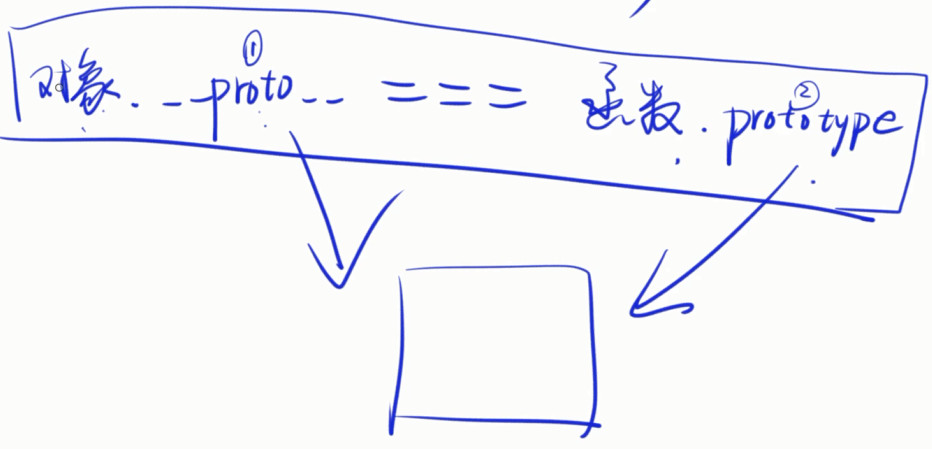 ① ②
对象.__proto__ === 函数.prototype